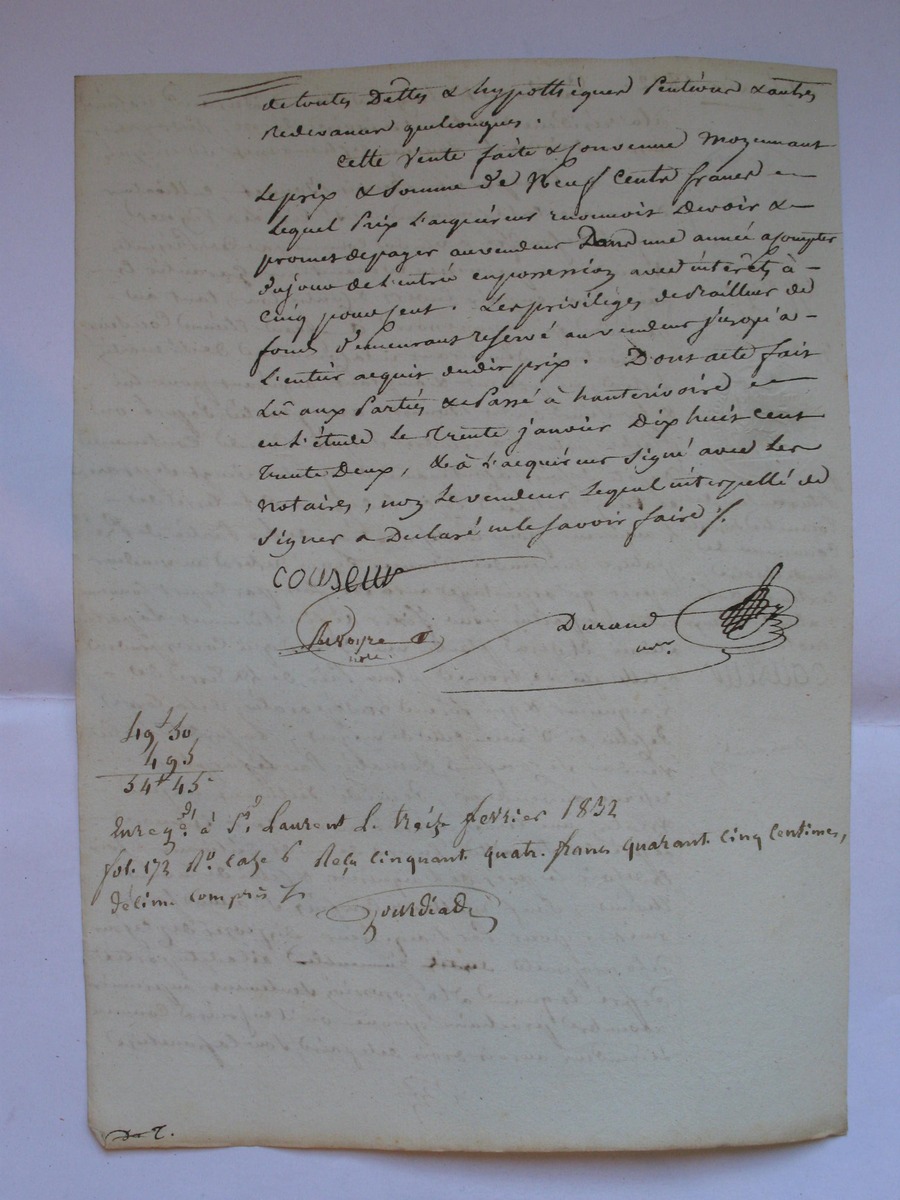 de toutes Dettes & hypothèques Antérieures & autres
Redevances quelconques.
Cette Vente faite & Convenue Moyennant
Le prix & Somme De Neuf Cents francs
Lequel Prix L'acquéreur reconnoit Devoir &
promet de payer au vendeur Dans une année a Compter
Du jour de L'entrée en possession avec intérêts à
Cinq pour Cent. Les privilèges de Bailleur de
fond Demeurant reservé au vendeur jusqu'à
L'entier acquit dudit prix. Dont acte fait
Lû aux Parties & Passé à hauterivoire
en L'étude Le Trente janvier Dix huit Cent
trente Deux, & à L'acquéreur Signé avec Les
Notaires, non Le vendeur Lequel interpellé de
Signer a Declaré ne le Savoir faire /.
COUSEUR
notre.
Durand
nore.
49f 50
4 95
54f 45c
Enregé. à St. Laurent Le treize fevrier 1832
fol. 173 Ro. Case 6 Reçu Cinquante quatre francs quarante Cinq Centimes,
décime compris /.